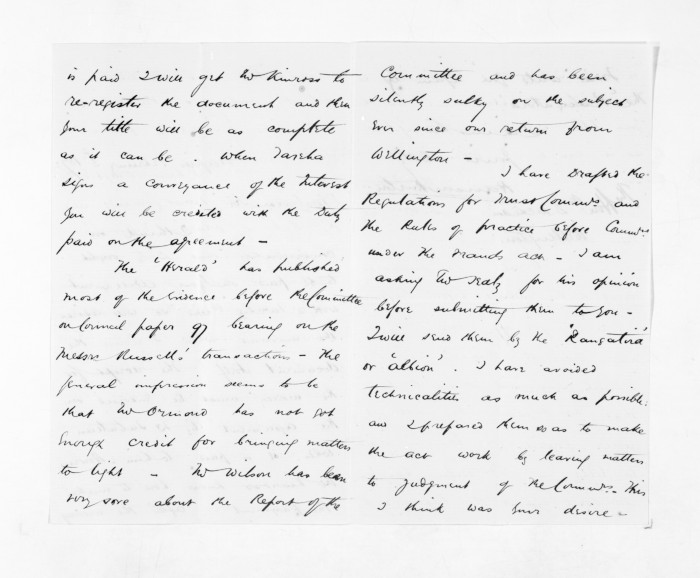 is paid I will get Mr Kinross to
re-register the document and then
your title will be as complete
as it can be. When Tareha
signs a conveyance of the Interest
you will be credited with the Duty
paid on the agreement –
The "Herald" has published
most of the Evidence before the Committee
on Council paper 97 bearing on the
Messrs Russell's transactions – The
general impression seems to be
that Mr Ormond has not got
Enough credit for bringing matters
to light – Mr Wilson has been
very sore about the Report of the
Committee and has been
silently sulky on the subject
Ever since our return from
Wellington –
I have Drafted the
Regulations for Trust Commrs. and
the Rules of practice before Commrs.
under the Frauds act – I am
asking Mr Sealy for his opinion
before submitting them to you –
I will send them by the 'Rangatira'
or 'Albion'. I have avoided
technicalities as much as possible
and prepared them so as to make
the act work by leaving matters
to judgment of the Commrs. – This
I think was your desire –